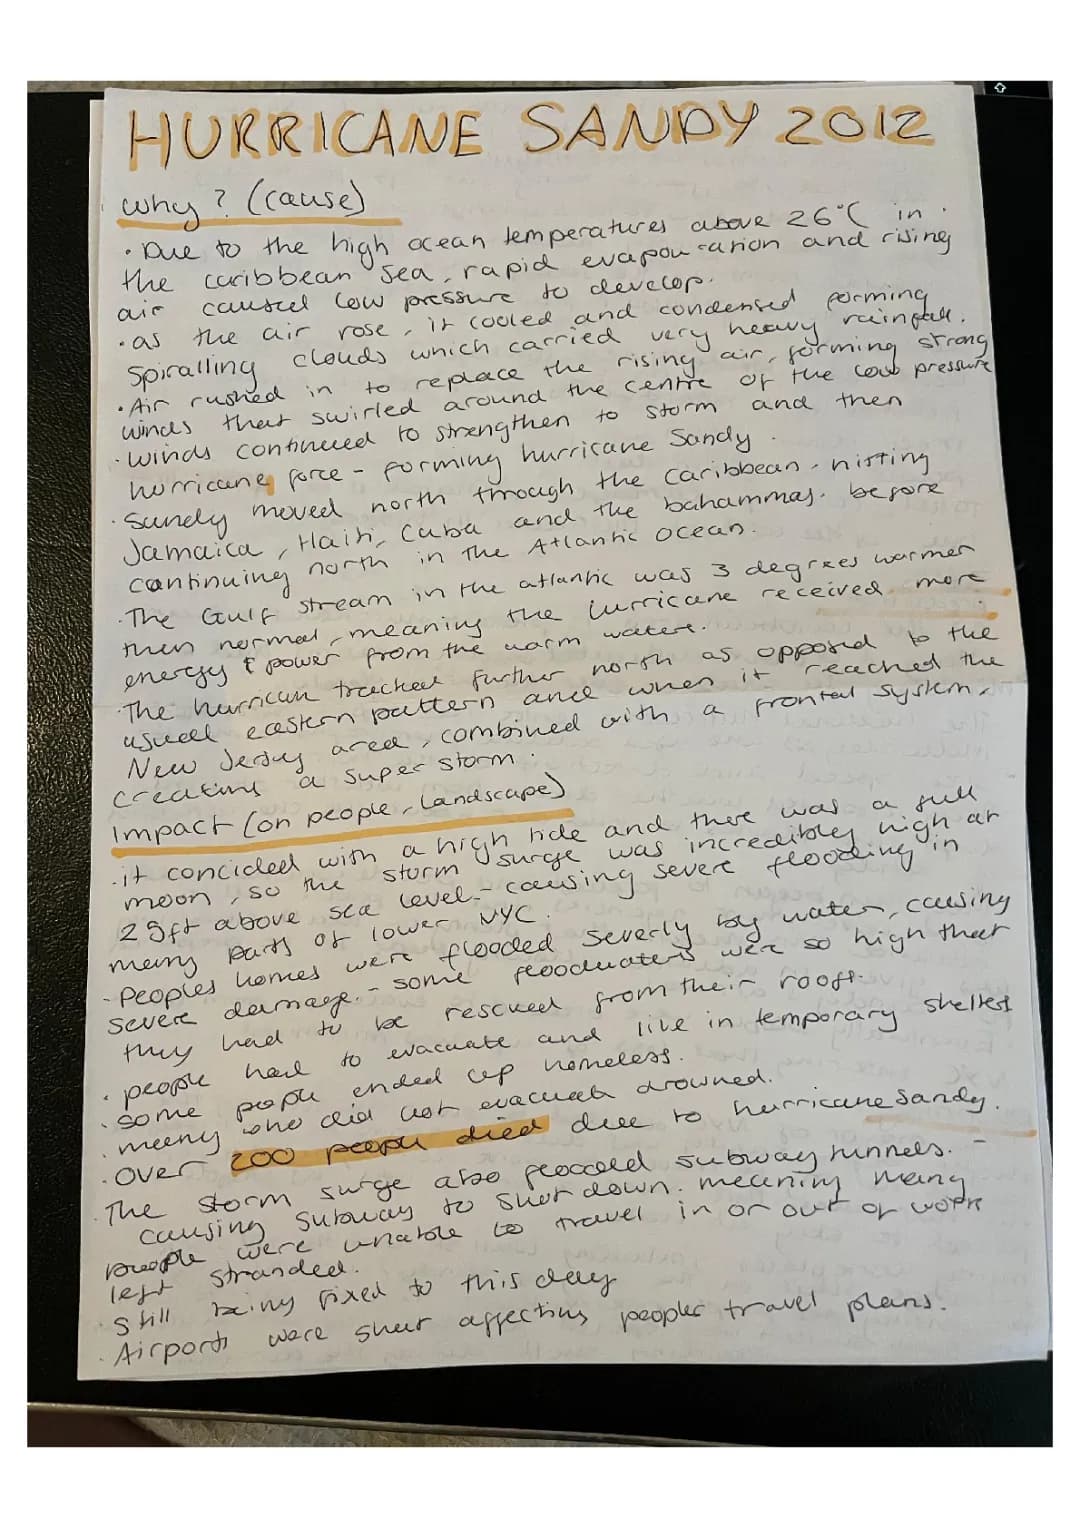 HURRICANE SANDY 2012
why? (cause)
· Due to the high ocean temperatures above 26°C in
the caribbean sea, rapid evapouration and rising
air caused low pressure to develop.
· as the air rose, it cooled and condensed forming
spiralling clouds which carried very heavy rainfall.
· Air rushed in to replace the rising air, forming strong
winds that swirled around the centre of the low pressure
· winds continued to strengthen to storm and then
hurricane force - forming hurricane Sandy.
· Sandy moved north through the Caribbean, hitting
Jamaica, Haiti, Cuba and the bahammas. before
continuing north in the Atlantic ocean.
· The Gulf stream in the atlantic was 3 degrees warmer
then normal, meaning the hurricane received more
energy & power from the warm water.
· The hurrican tracked further north as opposed to the
usual eastern pattern and when it reached the
New Jersey area, combined with a frontal system,
creating a super storm.
Impact (on people, landscape)
· it concided with a high tide and there was a full
moon, so the storm surge was incredibley high at
29ft above sea level - causing severe flooding in
many parts of lower NYC.
· Peoples homes were flooded severly by water, causing
severe damage. - some floodwaters were so high that
they had to be rescued from their roofs.
· people had to evacuate and live in temporary shelters
· some people ended up homeless.
· many who did not evacuate drowned.
· Over 200 people died due to hurricane Sandy.
· The storm surge also flooded subway tunnels. -
causing subway to shut down. meaning many
people were unable to travel in or out of work
left stranded.
· Still being fixed to this day
· Airports were shut affecting peoples travel plans.